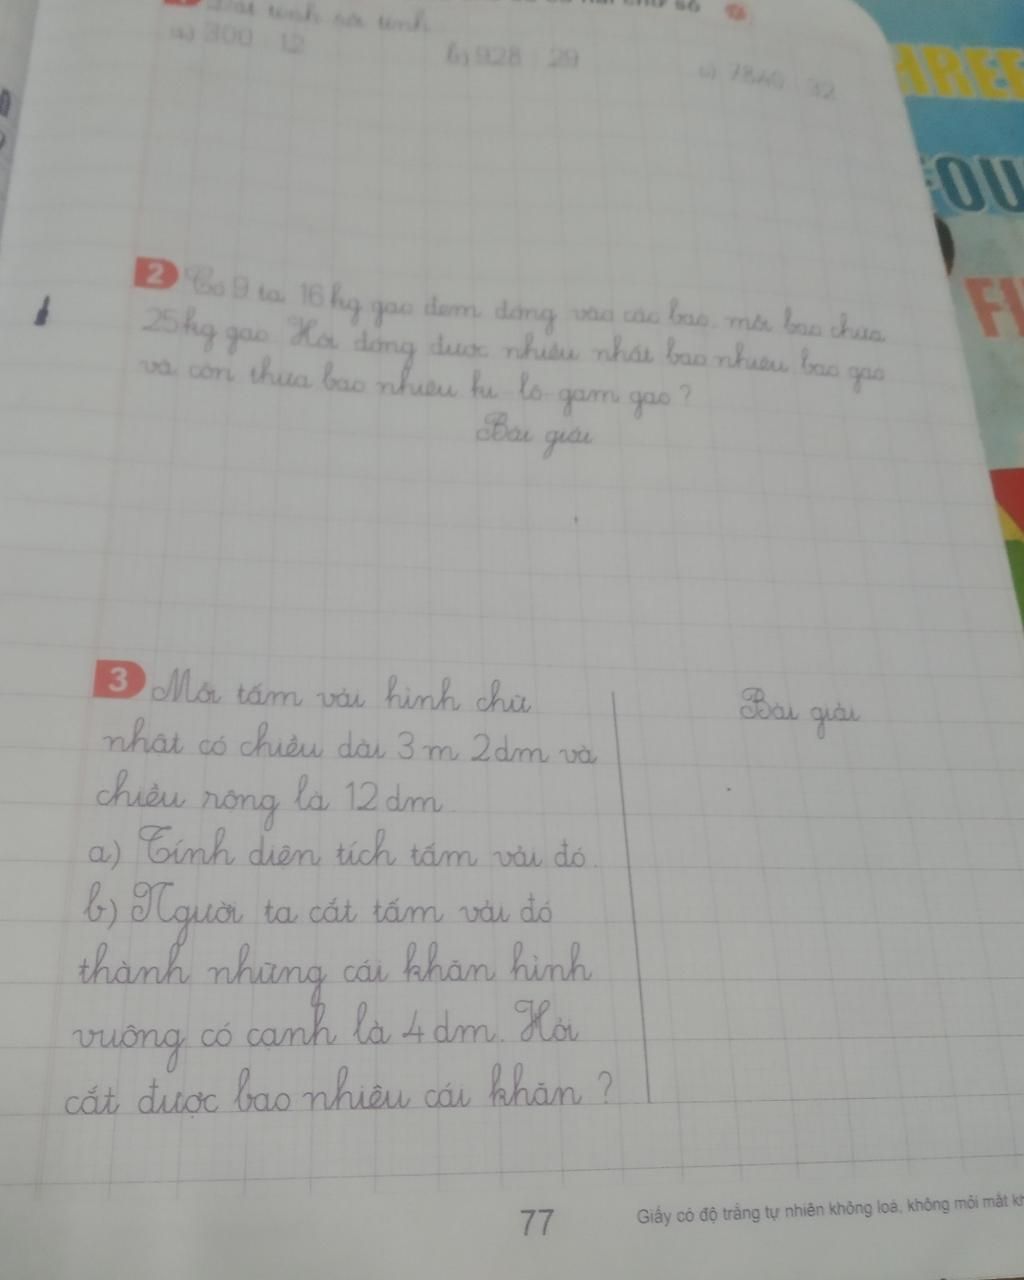 Đặt tính rồi tính
a) 300 : 12 b) 928 : 29 c) : 32
2 Có 9 tạ 16 kg gạo đem đóng vào các bao, mỗi bao chứa
25kg gạo. Hỏi đóng được nhiều nhất bao nhiêu bao gạo
và còn thừa bao nhiêu ki-lô-gam gạo?
Bài giải
3 Một tấm vải hình chữ
nhật có chiều dài 3m 2dm và
chiều rộng là 12dm.
a) Tính diện tích tấm vải đó.
b) Người ta cắt tấm vải đó
thành những cái khăn hình
vuông có cạnh là 4dm. Hỏi
cắt được bao nhiêu cái khăn?
Bài giải
77
Giấy có độ trắng tự nhiên không loá, không mỏi mắt
OU